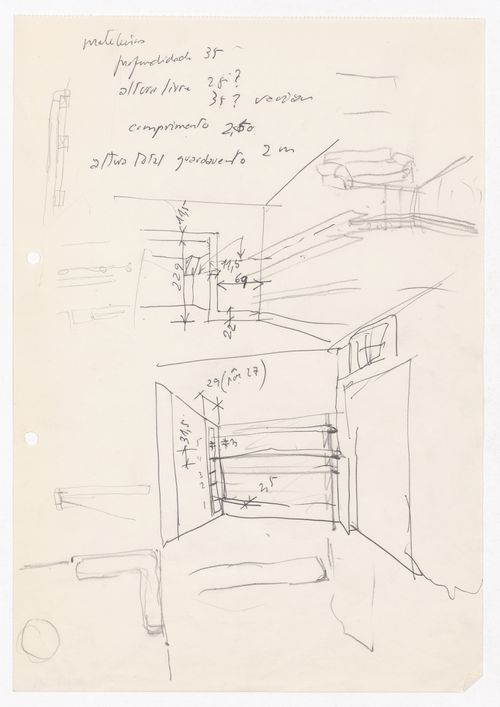 prateleiras
profundidade 35
altura livre 28?
35? variam
comprimento 2,60
altura total guardavento 2 m
11,5
229
11,5
69
22
29 (não 27)
31,5
5
4
3
2
1
2,5